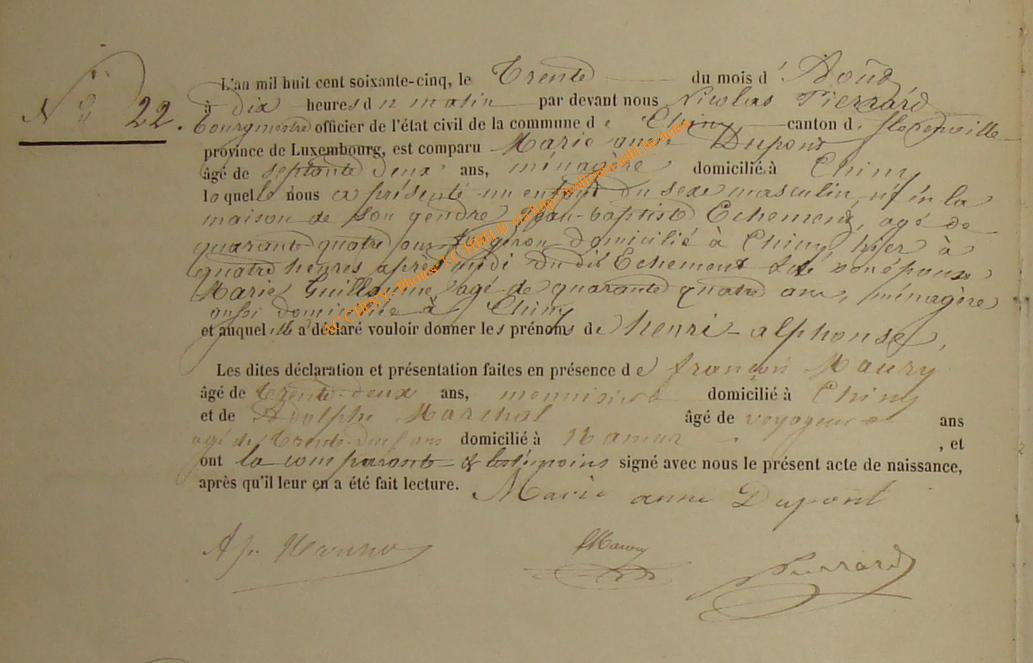 N° 22.
L'an mil huit cent soixante-cinq, le Trente du mois d' Août
à dix heures du matin par devant nous Nicolas Pierrard
bourgmestre officier de l'état civil de la commune de Chiny canton de florenville
province de Luxembourg, est comparu Marie anne Dupont
âgé de septante deux ans, ménagère domicilié à Chiny
laquelle nous a présenté un enfant du sexe masculin, né in la
maison de son gendre Jean-baptiste Echement, agé de
quarante quatre ans, domicilié à Chiny hier à
quatre heures après midi du dit Echement et de son épouse
Marie Guillaume, agé de quarante quatre ans, ménagère
aussi domiciliée à Chiny
et auquel elle a déclaré vouloir donner les prénoms de henri-alphonse,
Les dites déclaration et présentation faites en présence de françois Maury
âgé de trente-deux ans, menuisier domicilié à Chiny
et de Adolphe Marchal âgé de voyageur ans
agé de trente ans domicilié à Namur , et
ont la comparante & les témoins signé avec nous le présent acte de naissance,
après qu'il leur en a été fait lecture. Marie anne Dupont
FMaury
Pierrard